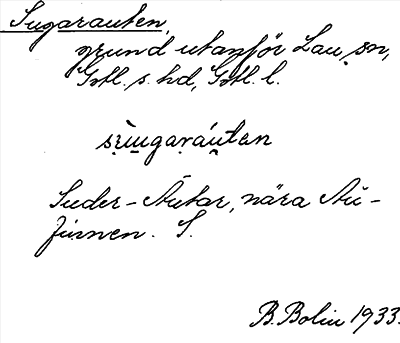 Sugarauten,
grund utanför Lau sn,
Gotl. s. hd, Gotl. l.
sugaráutan
Suder-Autar, nära Au-
furnen. S.
B. Bolin 1933.